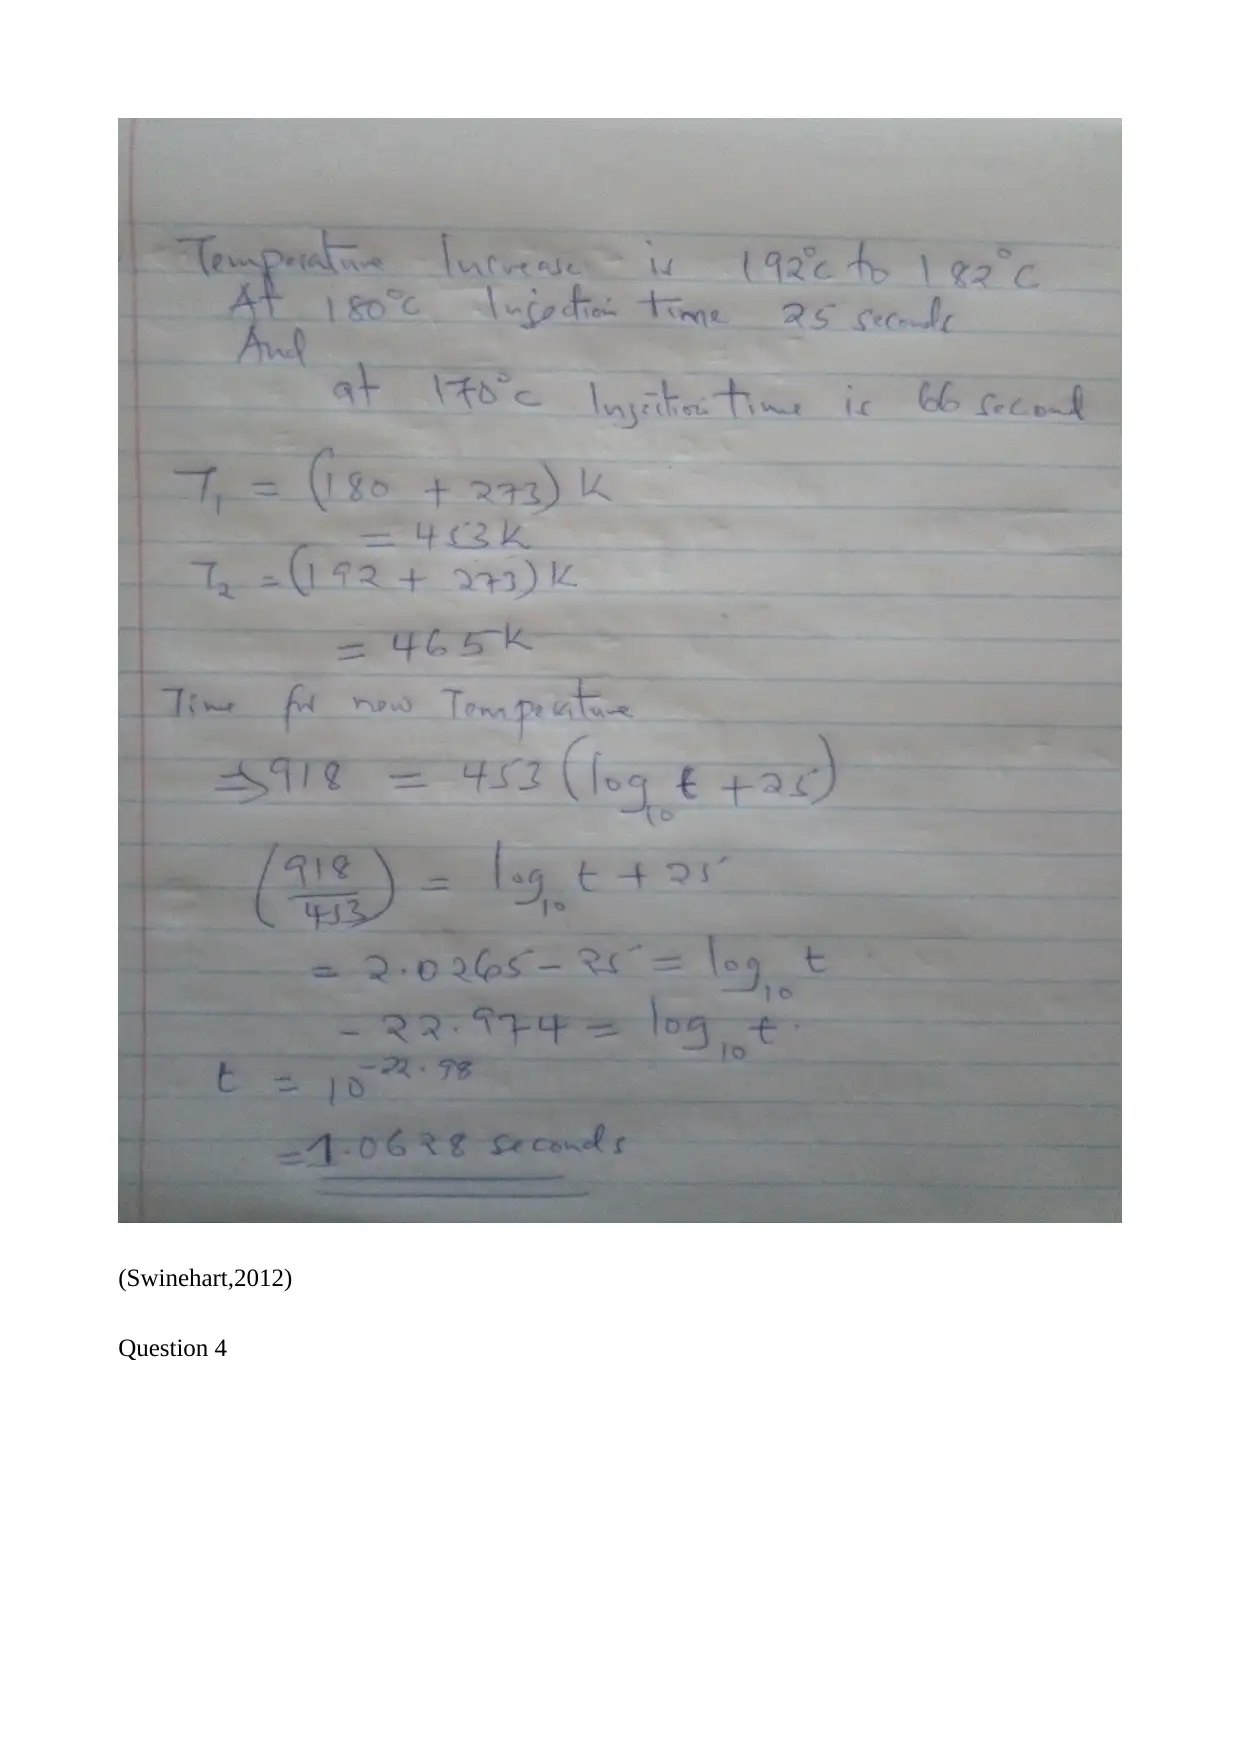 Temperature Increase is 192°c to 182°C
At 180°c Injection time 25 seconds
And
at 170°c Injection time is 66 second
T₁ = (180 + 273) K
= 453K
T₂ = (192 + 273) K
= 465K
Time for new Temperature
⇒ 918 = 453 (log₁₀ t + 25)
(918/453) = log₁₀ t + 25
= 2.0265 - 25 = log₁₀ t
- 22.974 = log₁₀ t.
t = 10^-22.98
= 1.0628 seconds
(Swinehart,2012)
Question 4